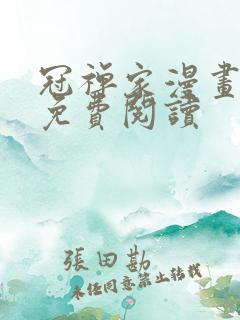 冠禪家漫畫
免費閱讀
張田勘
未經同意禁止轉載